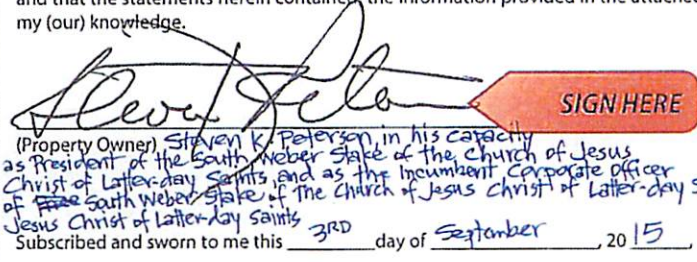 and that the statements herein contained, the information provided in the attached
my (our) knowledge.
SIGN HERE
(Property Owner) Steven K. Peterson, in his capacity
as President of the South Weber Stake of the Church of Jesus
Christ of Latter-day Saints, and as the Incumbent Corporate officer
of South Weber Stake of The Church of Jesus Christ of Latter-day S
Jesus Christ of Latter-day Saints
Subscribed and sworn to me this 3RD day of September, 2015,